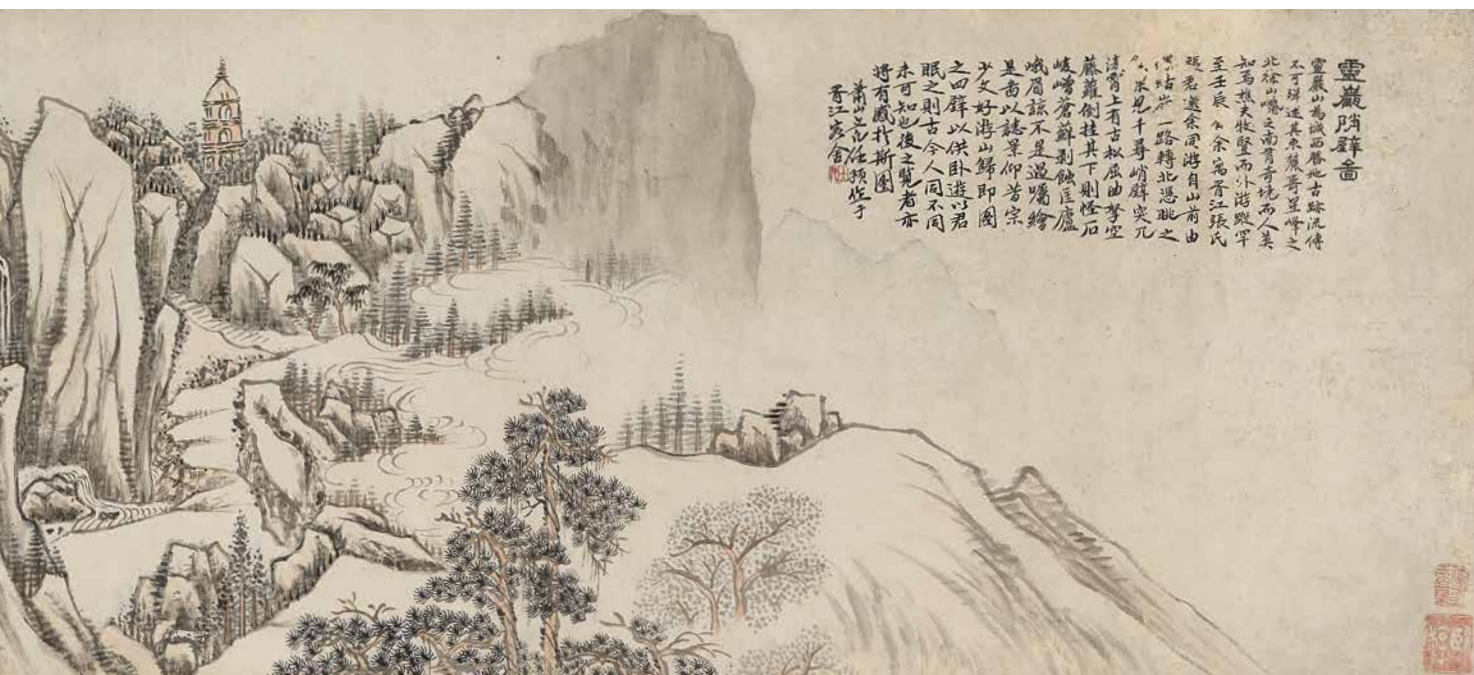 靈巖峭壁圖
靈巖山為城西勝地古跡流傳
不可殫述其東麓寄星峰之
北徐山嘴之南有奇境而人莫
知焉樵夫牧豎而外游蹤罕
至壬辰余寓胥江張氏
君邀余同游自山前由
一路轉北憑眺之
見千尋峭壁突兀
霄上有古松屈曲拏空
藤蘿倒挂其下則怪石
崚嶒蒼蘚剥蝕匡廬
峨眉諒不是過囑繪
是圖以誌景仰昔宗
少文好游山歸即圖
之四壁以供卧遊以君
眠之則古今人同不同
未可知也後之覽者亦
將有感於斯圖
蕭山任預作于
胥江客舍